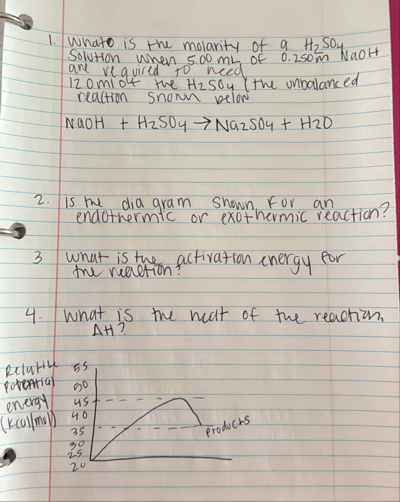 1. What is the molarity of a H2SO4
Solution when 5.00 mL of 0.250m NaOH
are required to need
12.0 ml of the H2SO4 (the unbalanced
reaction shown below
NaOH + H2SO4 → Na2SO4 + H2O
2. is the diagram shown for an
endothermic or exothermic reaction?
3 what is the activation energy for
the reaction?
4. What is the heat of the reaction,
ΔH?
Relative
Potential
energy
(kcal/mol)
55
50
45
40
35
30
25
20
products